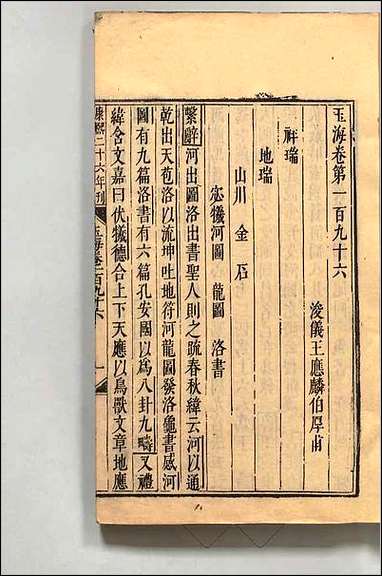 玉海卷第一百九十六
浚儀王應麟伯厚甫
祥瑞
地瑞
山川 金石
宓犧河圖 龍圖 洛書
繫辭河出圖洛出書聖人則之疏春秋緯云河以通
乾出天苞洛以流坤吐地符河龍圖發洛龜書感河
圖有九篇洛書有六篇孔安國以爲八卦九疇又禮
緯含文嘉曰伏犧德合上下天應以鳥獸文章地應
康熙二十六年刊
玉海卷一百九十六
一